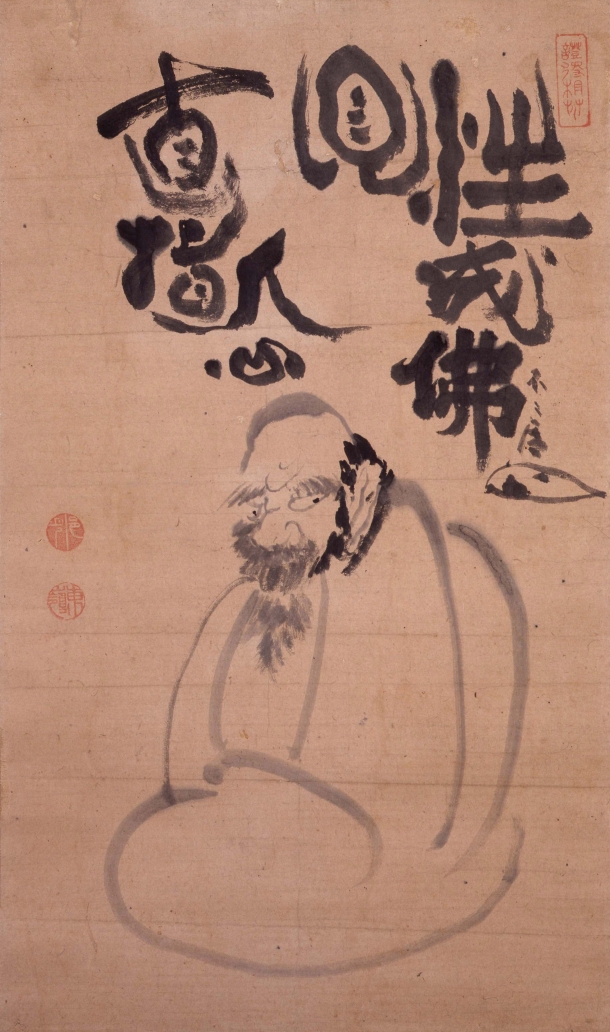 直指人心
見性成佛
不〻庵